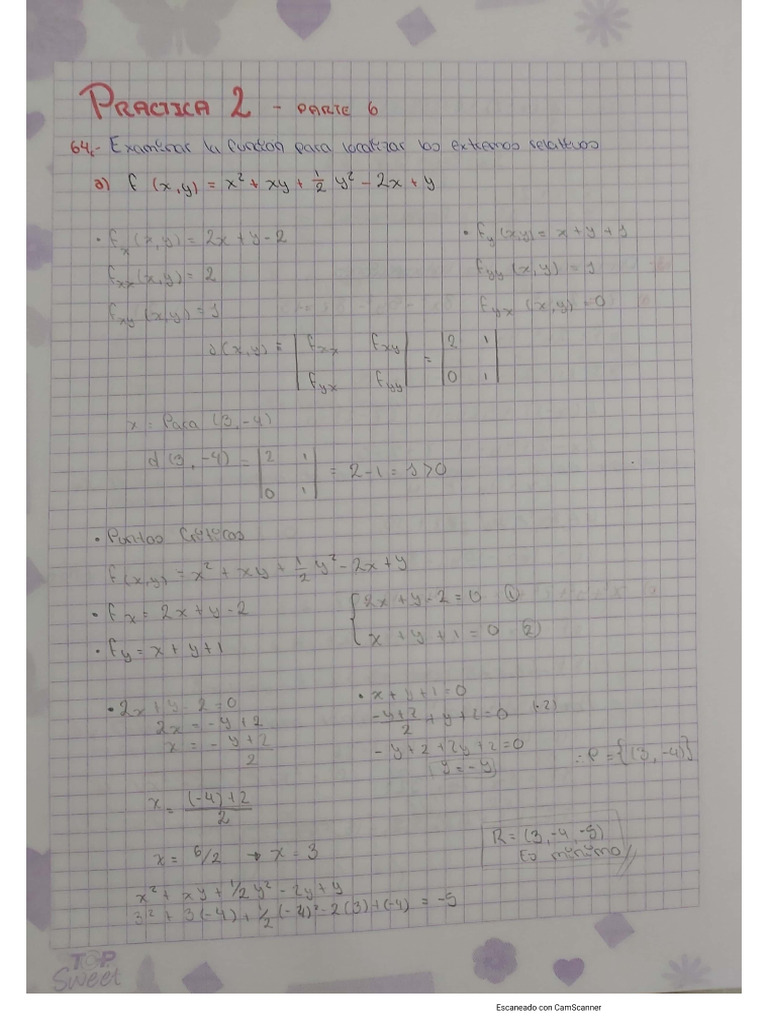 PRACTICA 2 - PARTE 6
64.- Examinar la función para localizar los extremos relativos
a) f (x,y) = x² + xy + 1/2 y² - 2x + y
• fx (x,y) = 2x + y - 2
• fy (x,y) = x + y + 1
fxx (x,y) = 2
fyy (x,y) = 1
fxy (x,y) = 1
fyx (x,y) = 0
d(x,y) = | fxx fxy | = | 2 1 |
| fyx fyy | | 0 1 |
x = Para (3, -4)
d (3, -4) = | 2 1 | = 2 - 1 = 1 > 0
| 0 1 |
• Puntos Críticos
f(x,y) = x² + xy + 1/2 y² - 2x + y
• fx = 2x + y - 2
{ 2x + y - 2 = 0 ①
• fy = x + y + 1
x + y + 1 = 0 ②
• 2x + y - 2 = 0
2x = -y + 2
x = - y + 2 / 2
• x + y + 1 = 0
-y + 2 / 2 + y + 1 = 0 (·2)
- y + 2 + 2y + 2 = 0
(y = -4)
∴ P = {(3, -4)}
x = (-4) + 2 / 2
x = 6/2 → x = 3
R = (3, -4, -5)
Es mínimo //
x² + xy + 1/2 y² - 2y + y
3² + 3(-4) + 1/2 (-4)² - 2(3) + (-4) = -5
TOP
Sweet
Escaneado con CamScanner